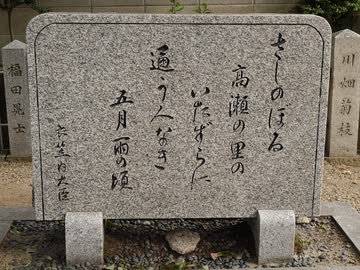 さしのぼる
高瀬の里の
いたずらに
通う人なき
五月雨の頃
衣笠内大臣
川畑菊枝
福田晃士